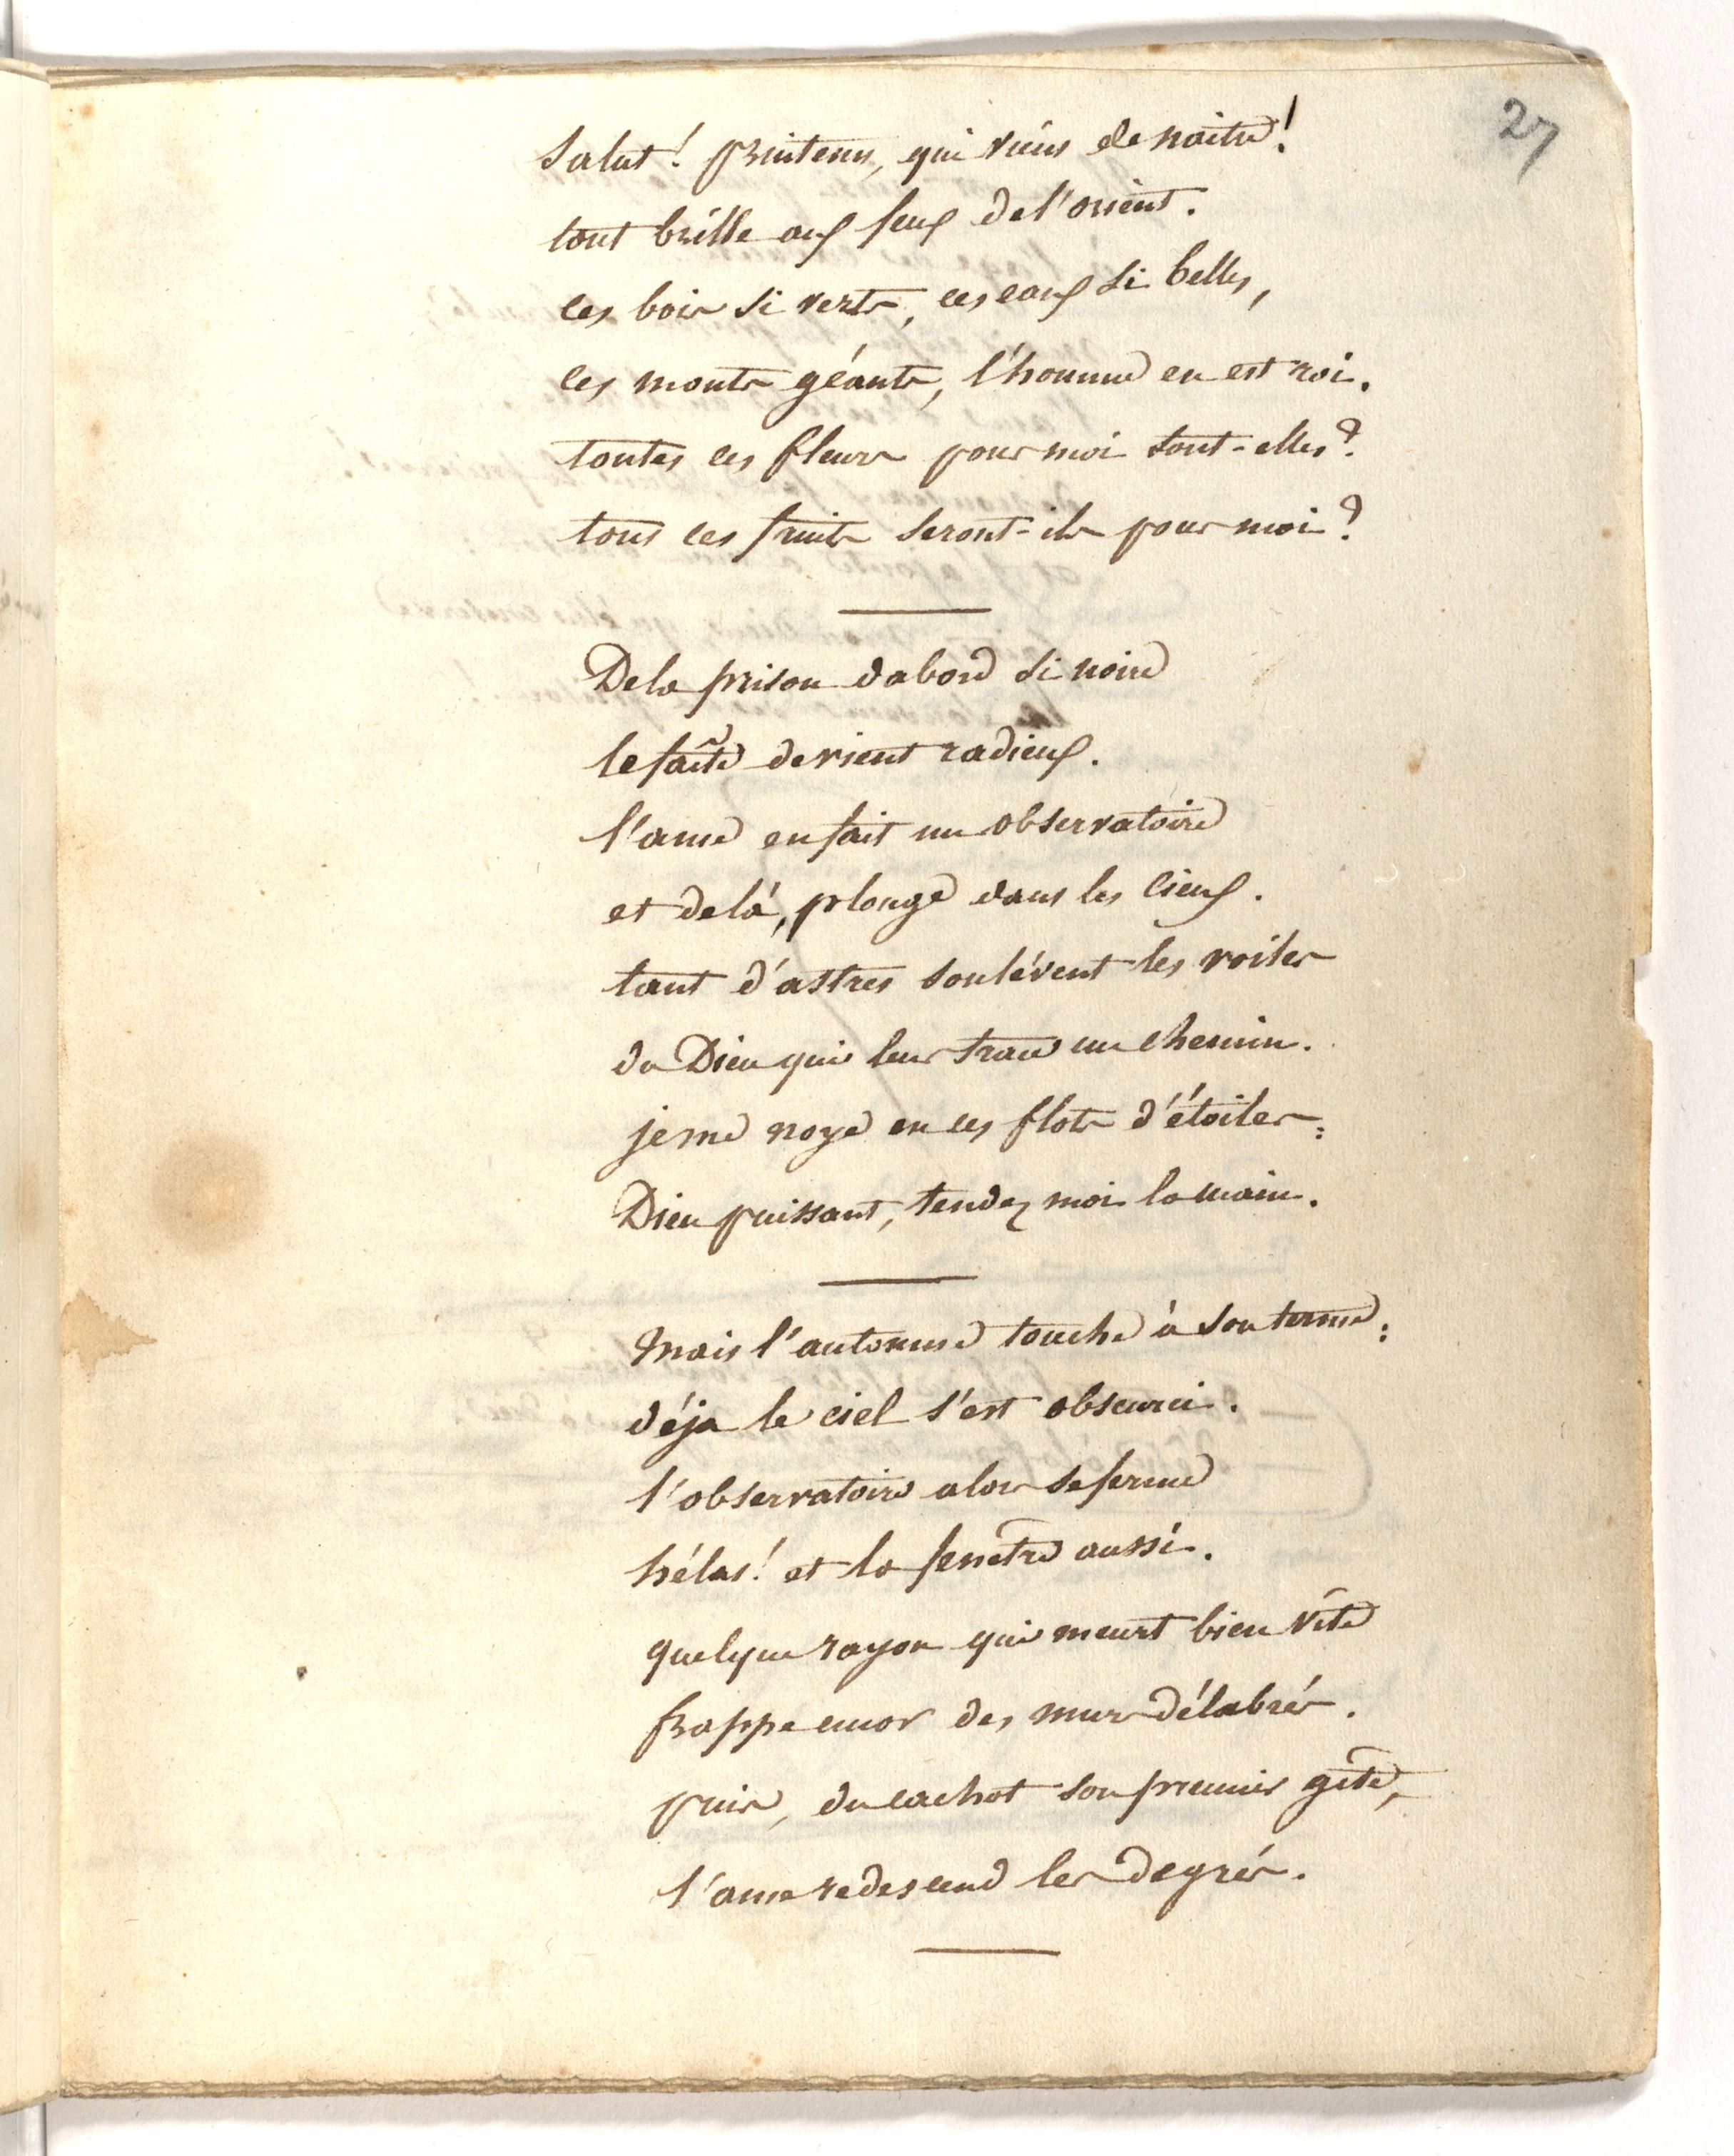 27
Salut! printems, qui viens de naitre!
tout brille aux feux de l'orient.
ces bois si verts, ces eaux si belles,
ces monts géants, l'homme en est roi.
toutes ces fleurs pour moi sont-elles?
tous ces fruits seront-ils pour moi?
De la prison dabord si noire
le faîte devient radieux.
l'ame en fait un observatoire
et delà, plonge dans les cieux.
tant d'astres soulévent les voiles
du Dieu qui leur trace un chemin.
je me noye en ces flots d'étoiles:
Dieu puissant, tendez moi la main.
Mais l'automne touche à son terme:
déja le ciel s'est obscurci.
l'observatoire alors se ferme
hélas! et la fenêtre aussi.
quelque rayon qui meurt bien vîte
frappe encor des murs délabrés.
puis, du cachot son premier gîte,
l'ame redescend les degrés.